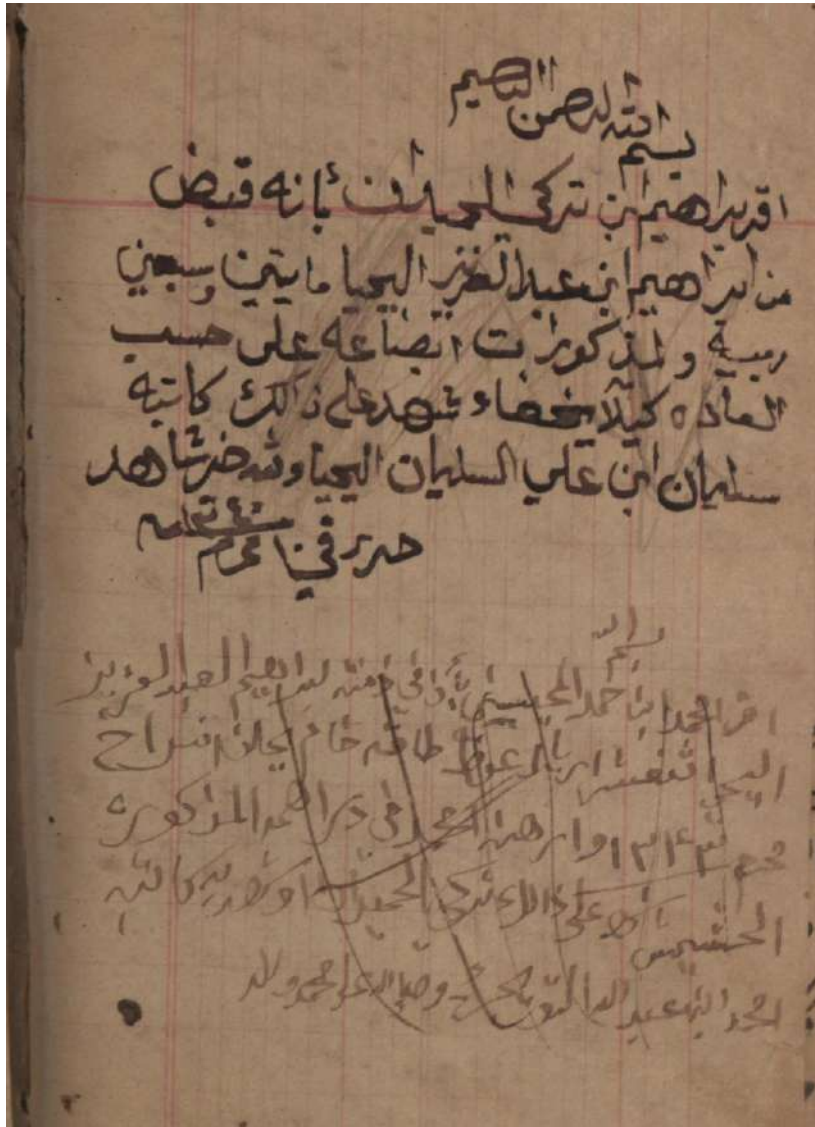 بسم الله الرحمن الرحيم
اقر براهيم ابن تركي الحميدان بأنه قبض
من ابراهيم ابن عبد العزيز اليحيا مايتين وسبعين
ربية والمذكورات ابضاعه على حسب
العاده كيلا يخفاء شهد على ذالك كاتبه
سليمان ابن علي السليمان اليحيا والله خير شاهد
حرر في محرم
بسم الله
اقر احمد ابن حمد بأن في ذمته لبراهيم العبد العزيز
اليحيا اثنعشر اريال عوض طاقة خام يحلن انسلاخ
محرم ١٣٤٣ وارهنه احمد في دراهمه المذكورة
شهد على ذالك تركي الحميدان وشهد به كاتبه
احمد ابن عبد الله وصلى الله على محمد واله